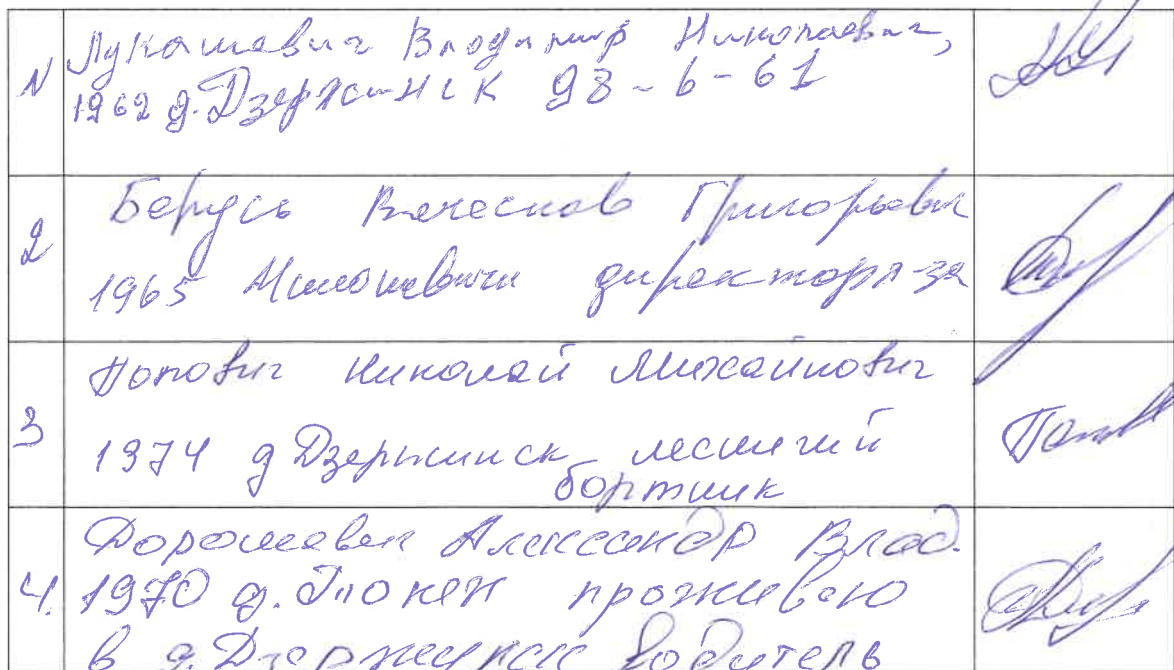 N Лукашевич Владимир Николаевич,
1962 д. Дзержинск 98-6-61
2 Берусь Вячеслав Григорьевич
1965 Милошевичи директор л-за
Попович Николай Михайлович
3 1974 д Дзержинск лесничий
бортник
Дорошевич Александр Влад.
4. 1970 д. проживаю
в д. Дзержинск водитель